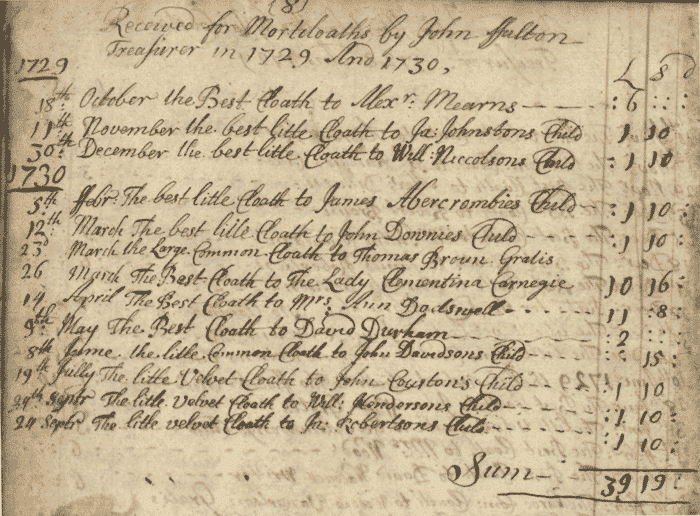 (8)
Received for Mortcloaths by John ffulton
Treasurer in 1729 And 1730,
1729 L S d
18th: October the Best Cloath to Alexr: Mearns : 6 : :
11th: November the best litle Cloath to Ja: Johnstons Child : 1 10
30th: December the best litle Cloath to Will: Niccolsons Child : 1 10
1730
5th ffebr. The best litle Cloath to James Abercrombies Child : 1 10 :
12th: March The best litle Cloath to John Downies Child : 1 10 :
23d March the Large Common Cloath to Thomas Broun. Gratis
26 March The Best Cloath to The Lady Clementina Carnegie 10 16 :
14 April The Best Cloath to Mrs. Ann Dodswell 11 : 8 :
9th: May The Best Cloath to David Durham : 2 : :
8th June the litle Common Cloath to John Davidsons Child 15 :
19th Jully The litle Velvet Cloath to John Couston's Child : 1 10
24th Septr The litle velvet Cloath to Will: Hendersons Child : 1 10 :
24 Septr The litle velvet Cloath to Ja: Robertsons Child : 1 10 :
Sum 39 19 :